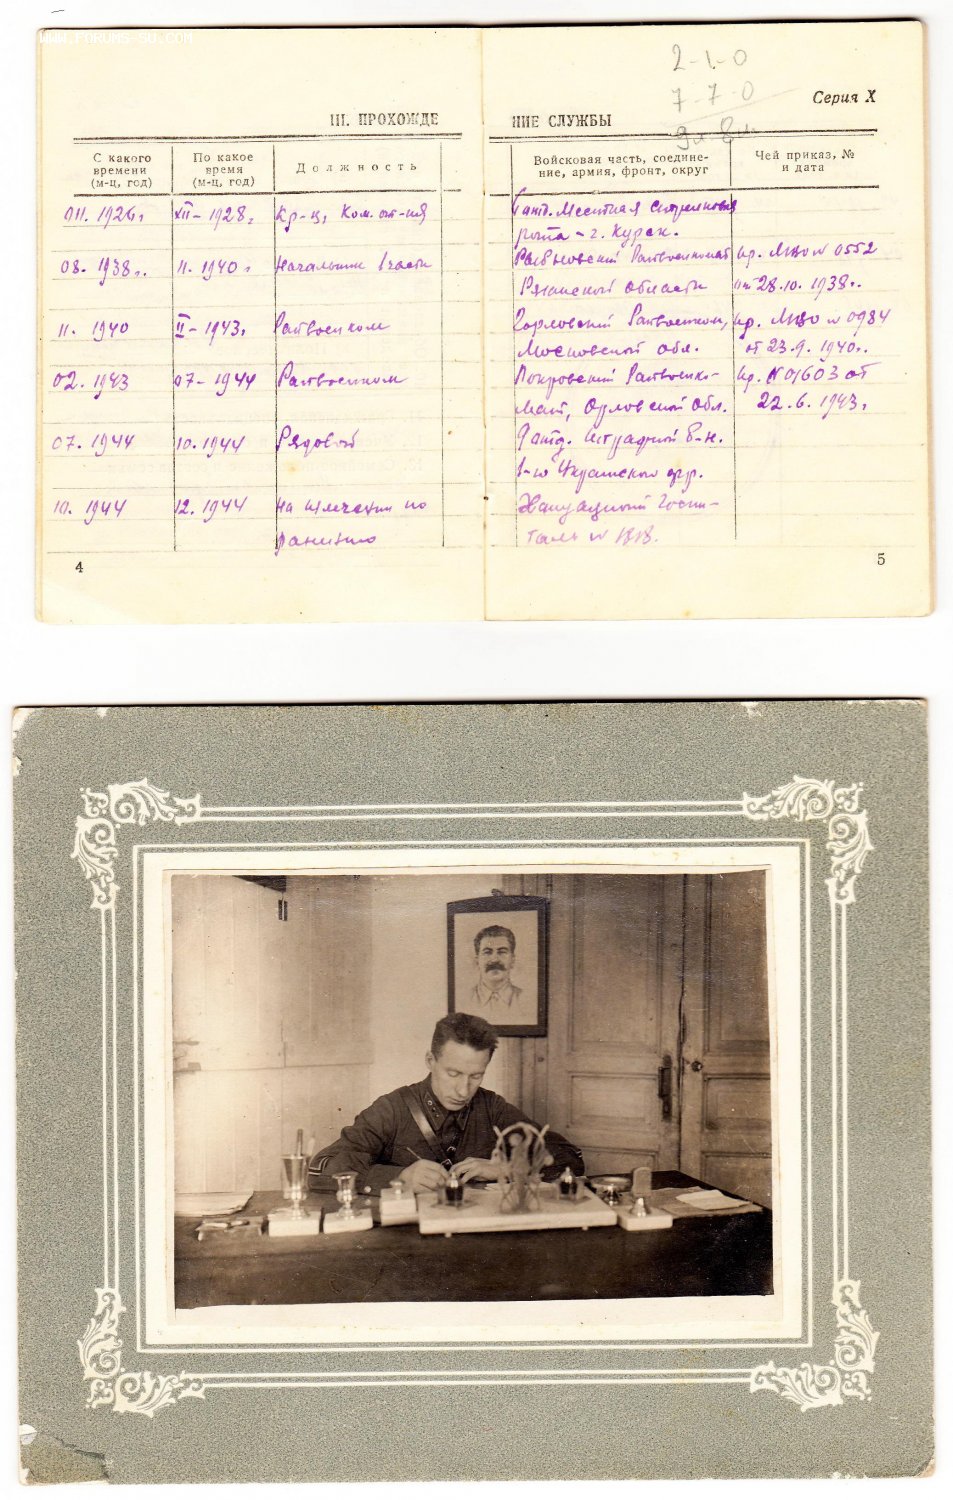 WWW.FORUMS-SU.COM
2-1-0
7-7-0
Серия X
III. ПРОХОЖДЕ
НИЕ СЛУЖБЫ
С какого времени (м-ц, год)
По какое время (м-ц, год)
Должность
Войсковая часть, соедине-
ние, армия, фронт, округ
Чей приказ, №
и дата
XII - 1928г
Кр-ц, Ком. от-ия
Местная стрелковая
рота - г. Курск.
08. 1938г.
11. 1940г
Начальник части
Рыбновский Райвоенкомат
Рязанской области
пр. МВО № 0552
от 28.10. 1938г.
11. 1940
II - 1943г
Райвоенком
Горловский Райвоенком,
Московской обл.
пр. МВО № 0984
от 23.9. 1940г.
02. 1943
07 - 1944
Райвоенком
Покровский Райвоенко-
мат, Орловской обл.
пр. № 01603 от
22.6. 1943г
07. 1944
10. 1944
Рядовой
9 отд. штрафной б-н.
1-го Украинского фр.
10. 1944
12. 1944
на излечении по
ранению
госпи-
таль № 1818.
4
5